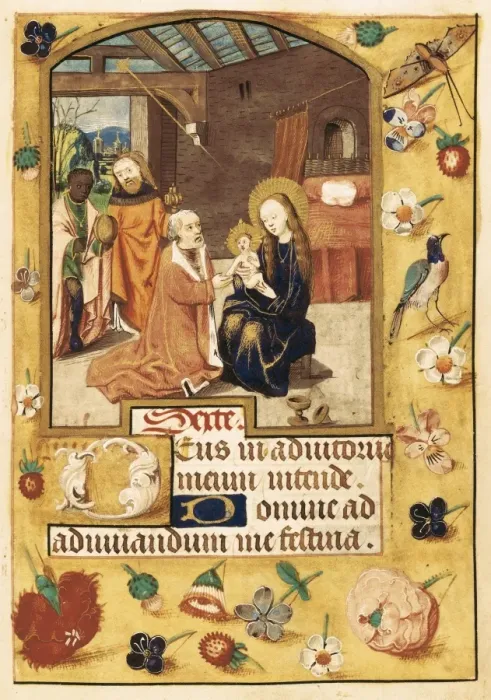 Sexte.
DEus in adiutoriu
meum intende.
Domine ad
adiuuandum me festina.